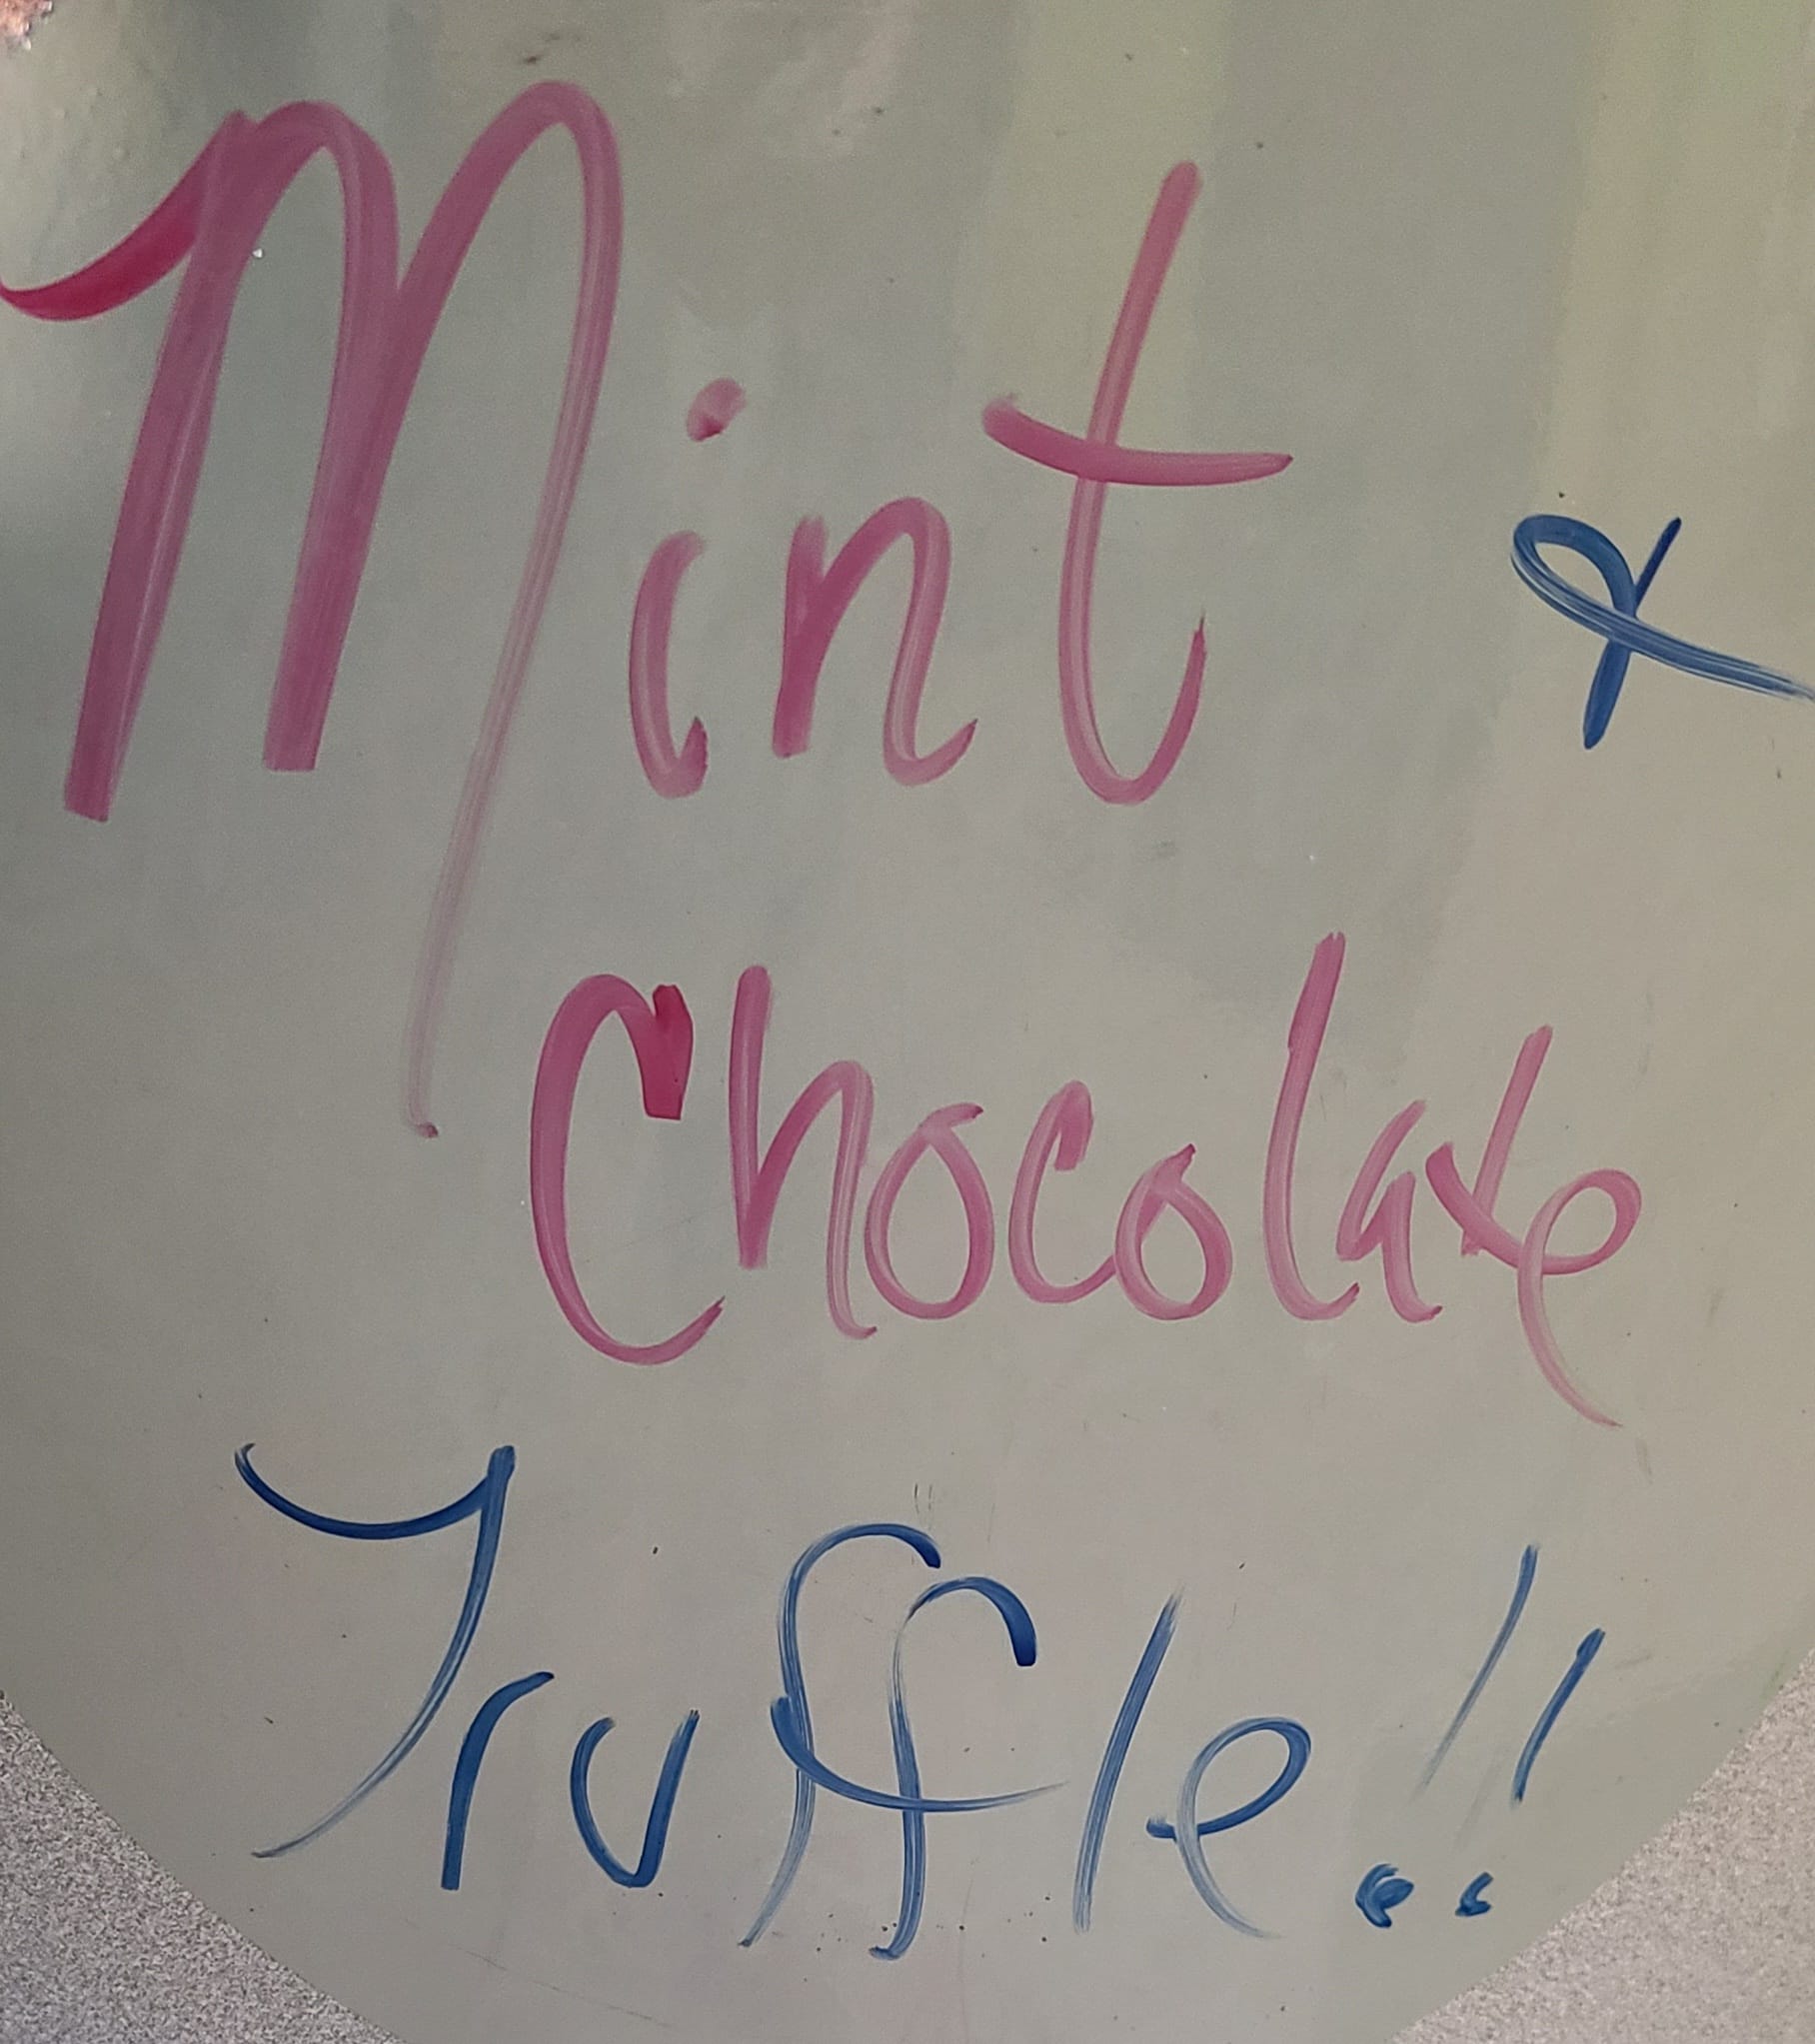 Mint &
Chocolate
Truffle!!